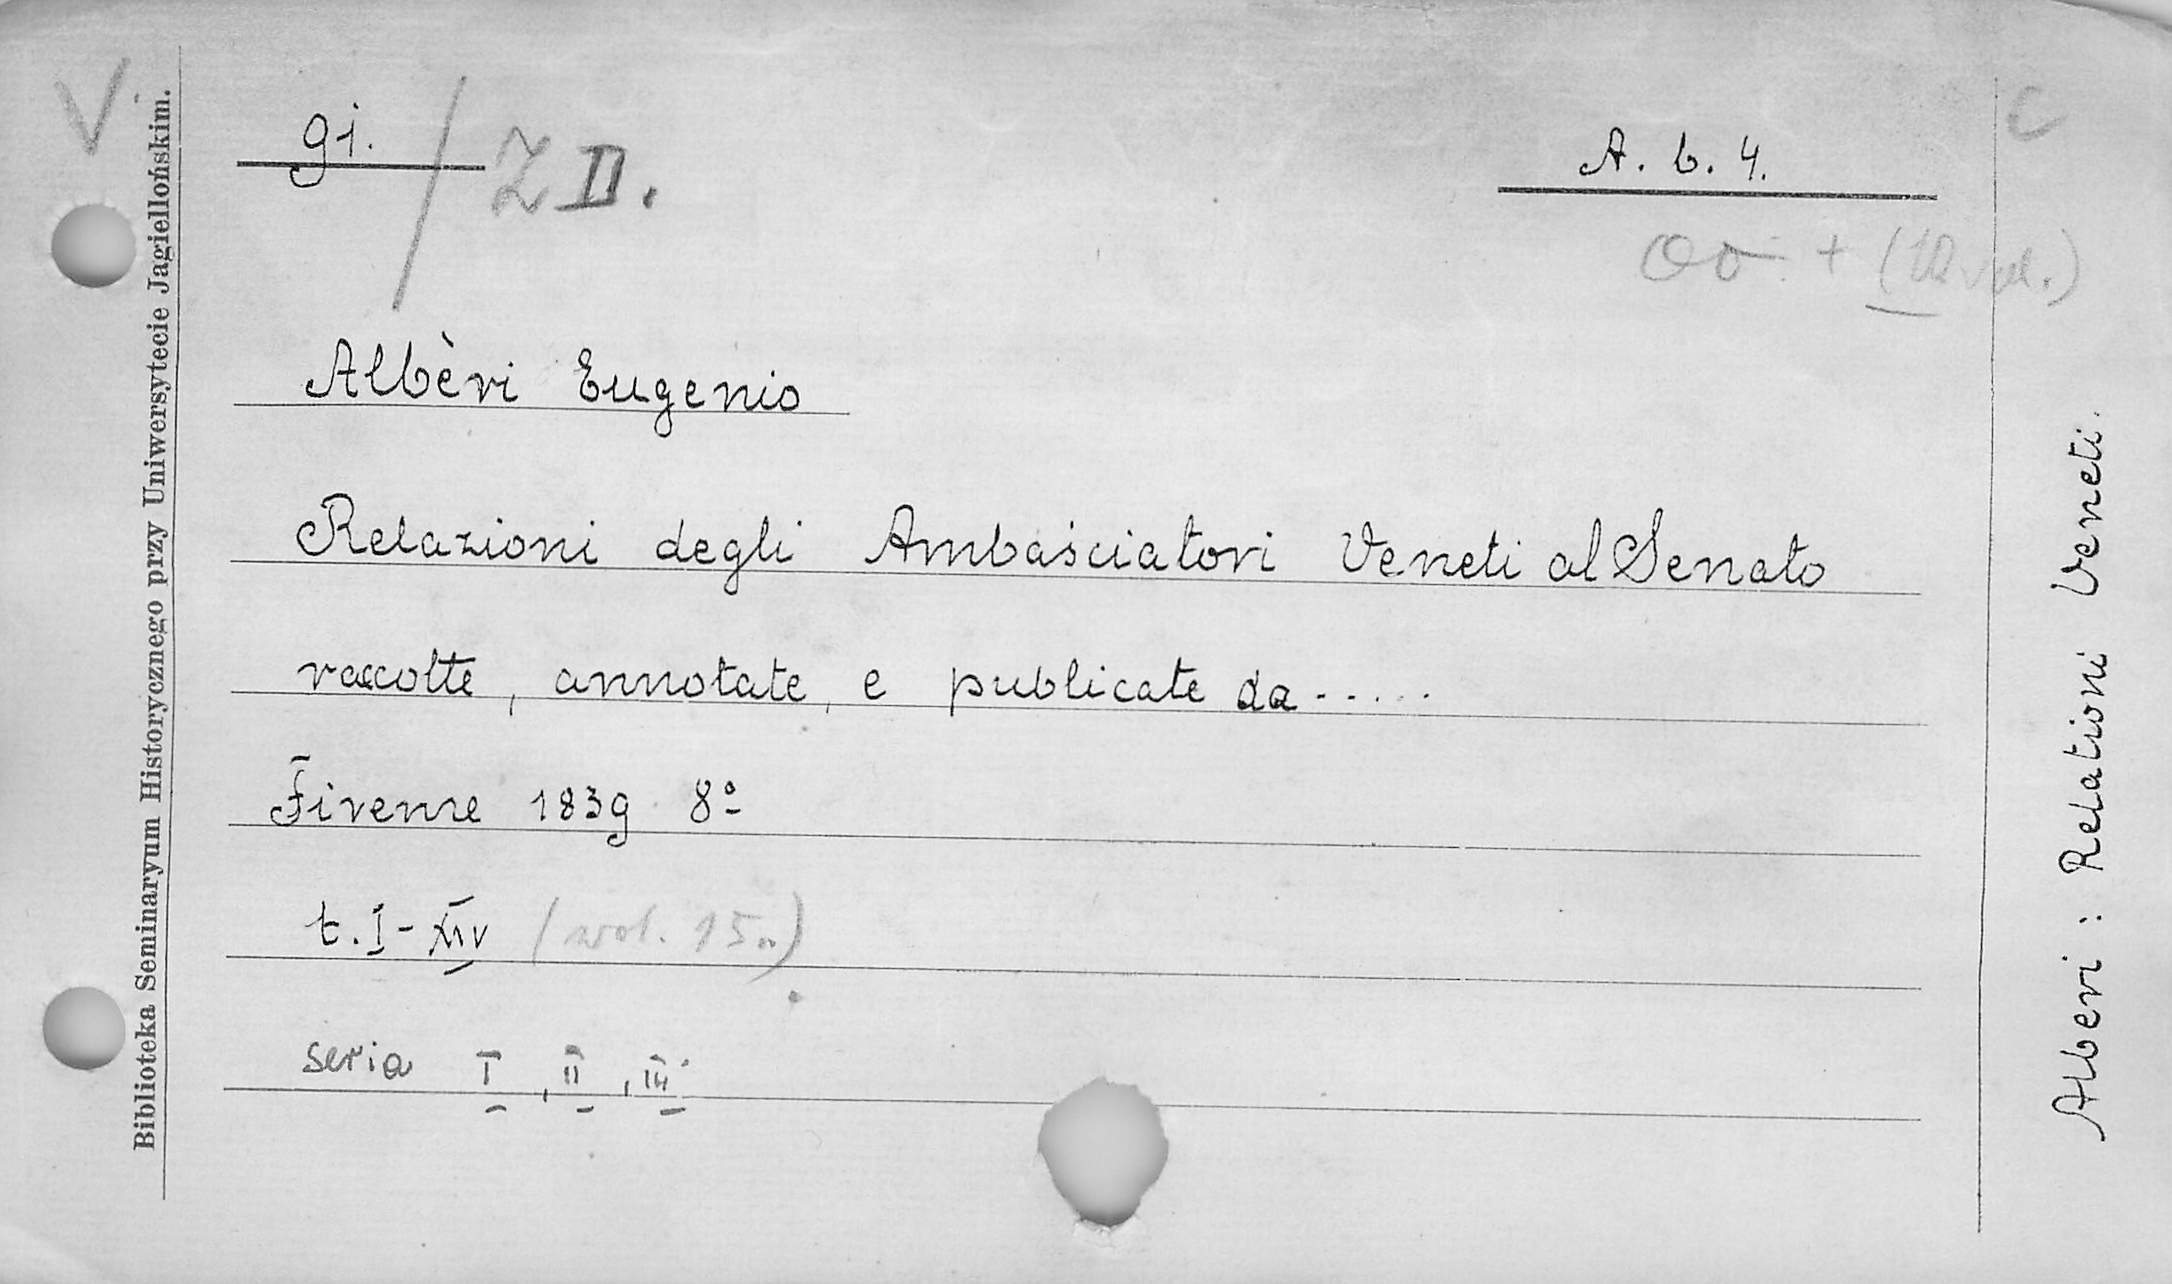 V
Biblioteka Seminaryum Historycznego przy Uniwersytecie Jagiellońskim.
91. / Z D.
A. b. 4.
C
+ (12 vol.)
Albèri Eugenio
Relazioni degli Ambasciatori Veneti al Senato
raccolte, annotate, e publicate da .....
Firenze 1839 8º
t. I - XIV (vol. 15.)
seria I, II, III
Alberi : Relationi Veneti.